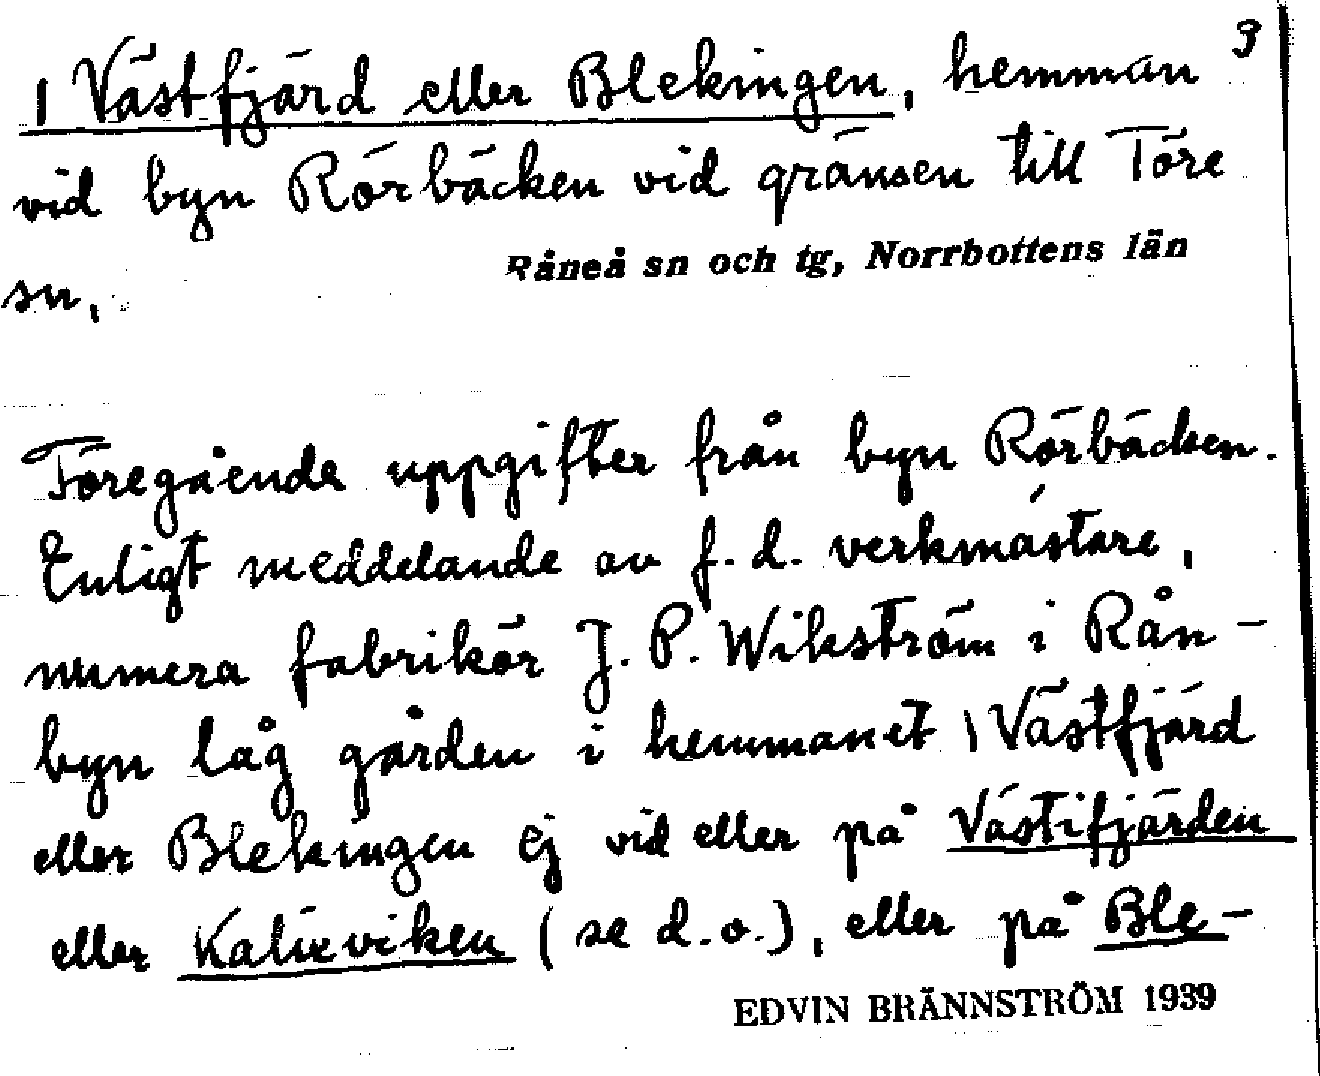 3
1 Västfjärd eller Blekingen, hemman
vid byn Rörbäcken vid gränsen till Töre
Råneå sn och tg, Norrbottens län
sn.
Föregående uppgifter från byn Rörbäcken.
Enligt meddelande av f.d. verkmästare,
numera fabrikör J.P. Wikström i Rån-
byn låg gården i hemmanet 1 Västfjärd
eller Blekingen ej vid eller på Västifjärden
eller Kalixviken (se d.o.), eller på Ble-
EDVIN BRÄNNSTRÖM 1939